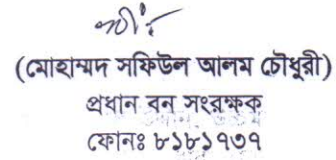 (মোহাম্মদ সফিউল আলম চৌধুরী)
প্রধান বন সংরক্ষক
ফোনঃ ৮১৮১৭৩৭